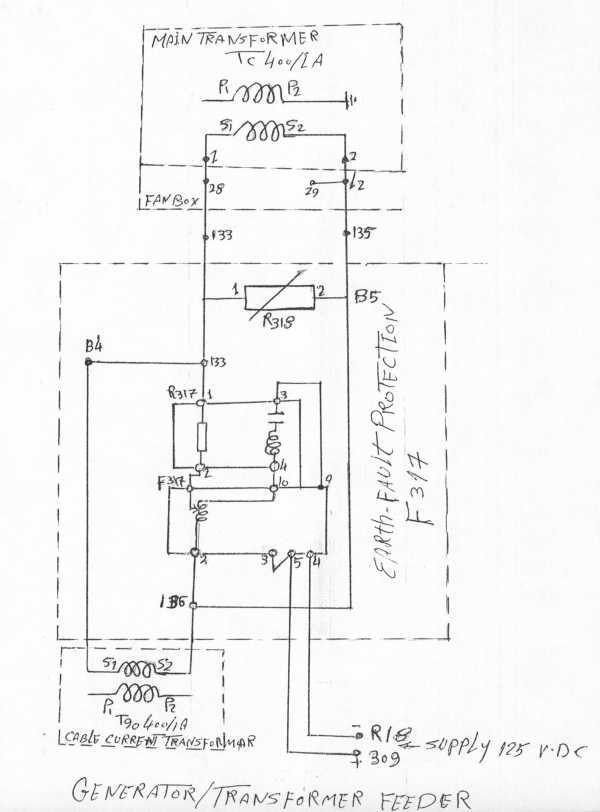 MAIN TRANSFORMER
TC 400/1A
P1 P2
S1 S2
1 2
28 29 12
FAN BOX
133 135
1 2 B5
R318
B4
133
R317 1 3
2 4
F317 10 9
2 3 5 4
136
EARTH-FAULT PROTECTION
F317
S1 S2
P1 P2
T90 400/1A
CABLE CURRENT TRANSFORMAR
- R18
+ 309
SUPPLY 125 V.DC
GENERATOR/TRANSFORMER FEEDER